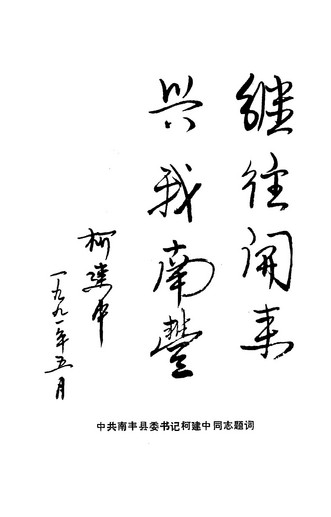 继往开来
兴我南豐
柯建中
一九九一年五月
中共南丰县委书记柯建中同志题词